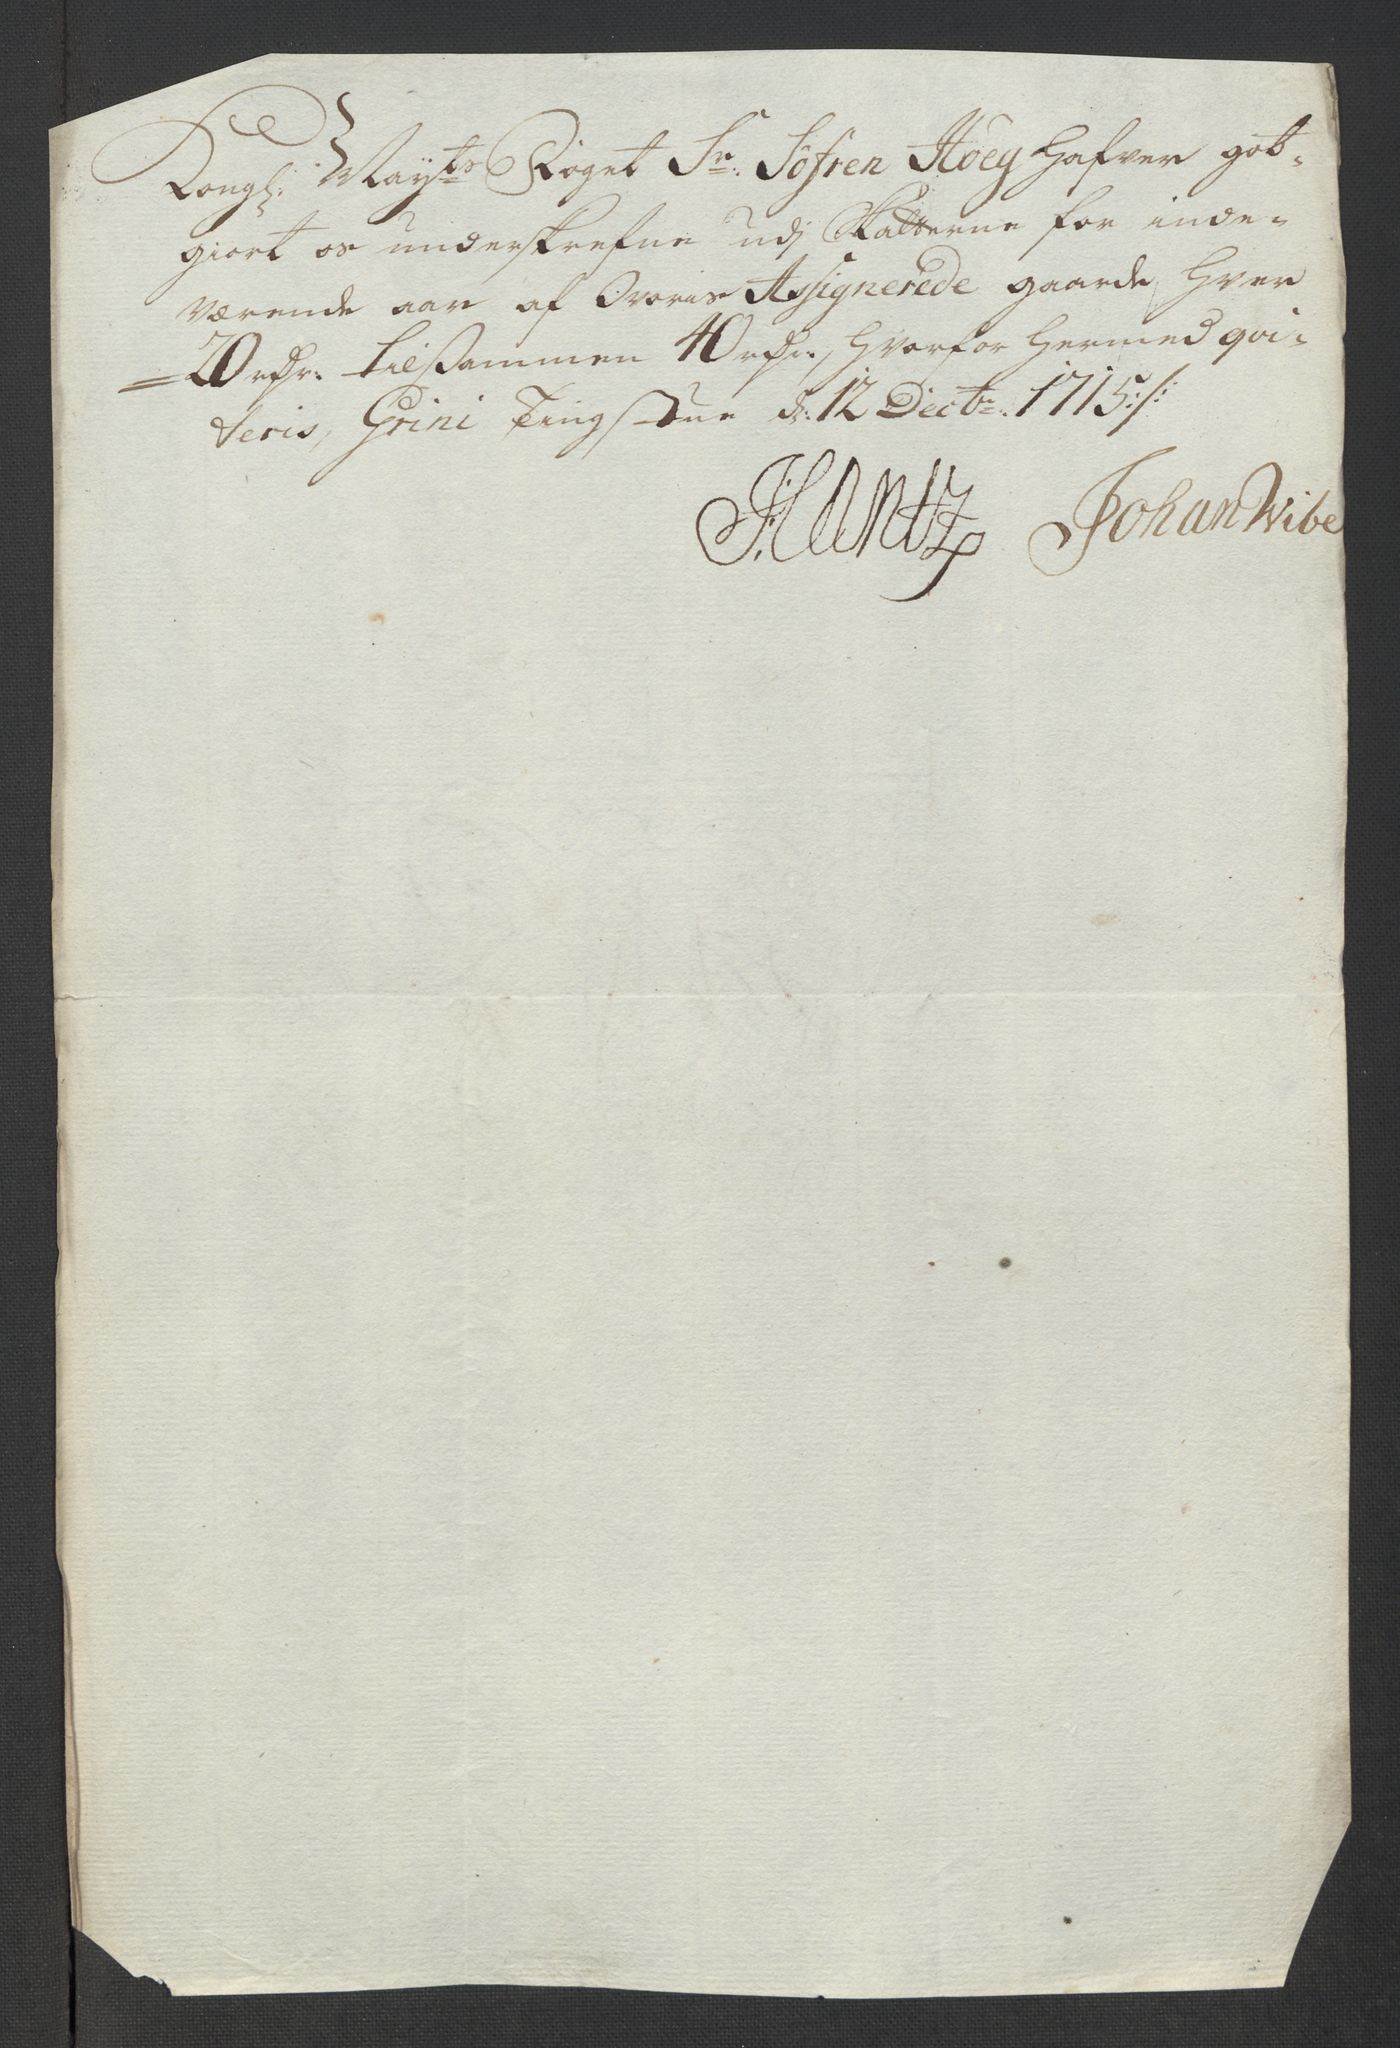 Kongl: Mayts Foget Sr: Söfren Höeg hafver got-
giort os underskrefne udj Skatterne for inde-
værende aar af Voris Assignerede gaarde, hver
20 rdr. tilsammen 40 rdr., hvorfor hermed qvi-
teris, Grini Tingstue d: 12 Dectr: 1715:/:
JHantz Johan Wibe